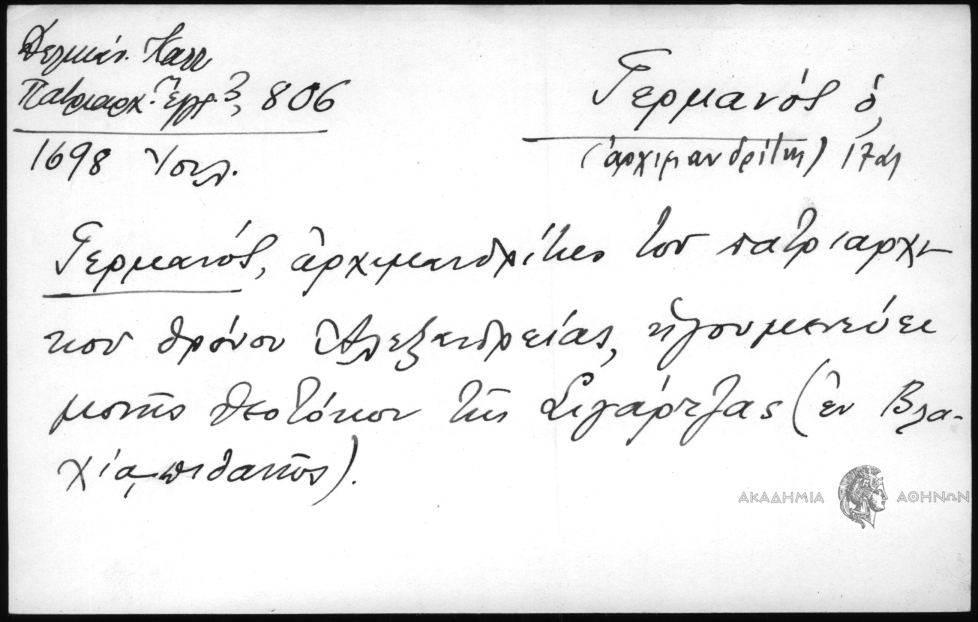 Δελικάν. Καλλ
Πατριαρχ. Ἔγγρ. 3, 806
1698 Ἰουλ.
Γερμανός ὁ,
(ἀρχιμανδρίτης) 17ος
Γερμανός, ἀρχιμανδρίτης τοῦ πατριαρχι-
κοῦ θρόνου Ἀλεξανδρείας, ἡγουμενεύει
μονῆς Θεοτόκου τῆς Σεγάρτζας (ἐν Βλα-
χίᾳ πιθανῶς).
ΑΚΑΔΗΜΙΑ ΑΘΗΝΩΝ